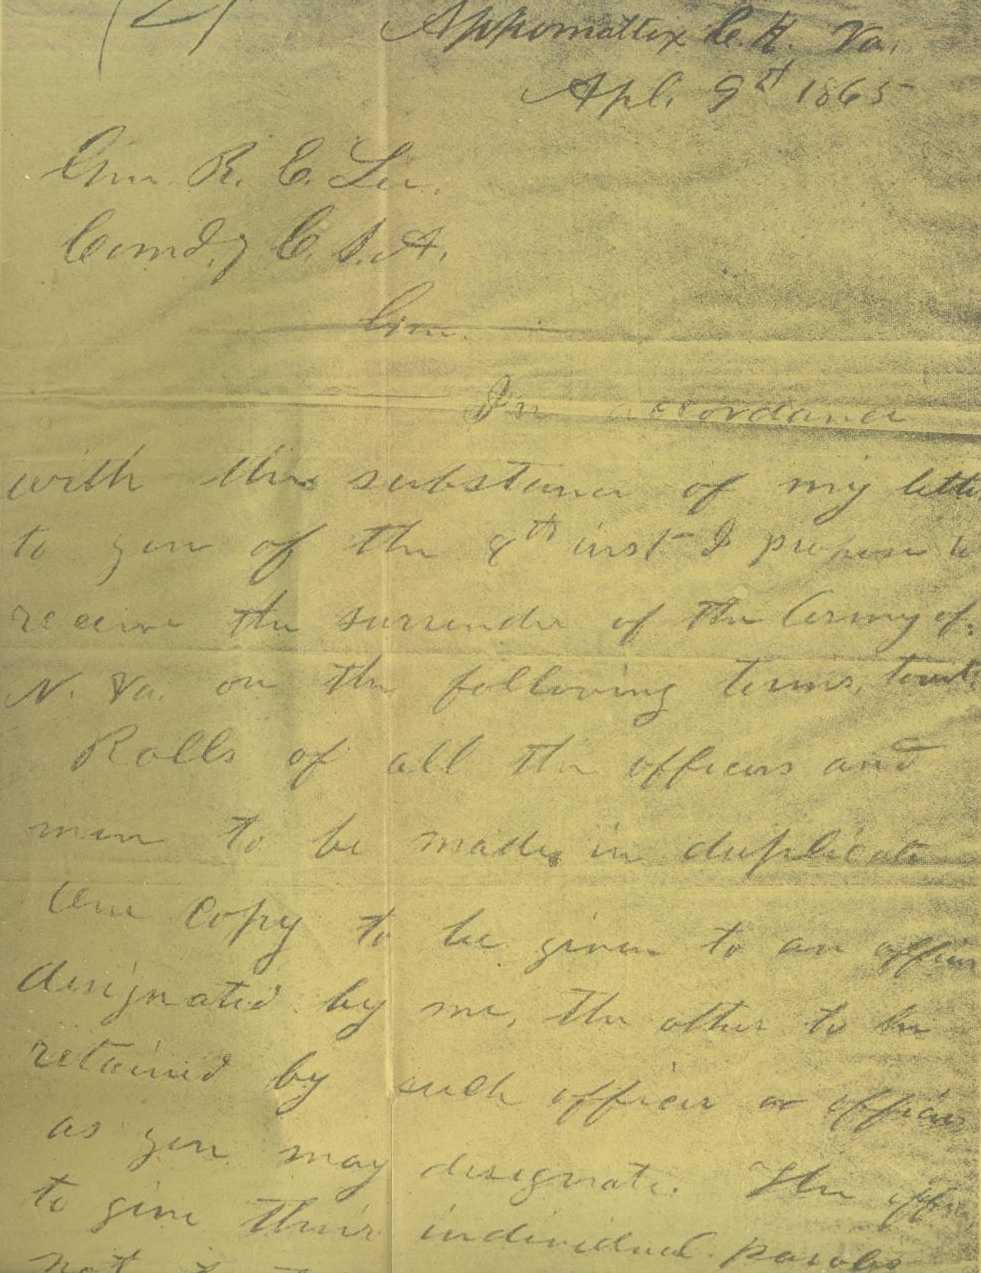 Appomattox C. H. Va.
Apl. 9th 1865
Gen. R. E. Lee.
Comd.g C. S. A.
Gen.
In accordance
with the substance of my lette
to you of the 8th inst I propose to
receive the surrender of the Army of
N. Va. on the following terms, towit:
Rolls of all the officers and
men to be made in duplicate
One copy to be given to an officer
designated by me, the other to be
retained by such officer or officers
as you may designate. The office
to give their individual paroles
not to